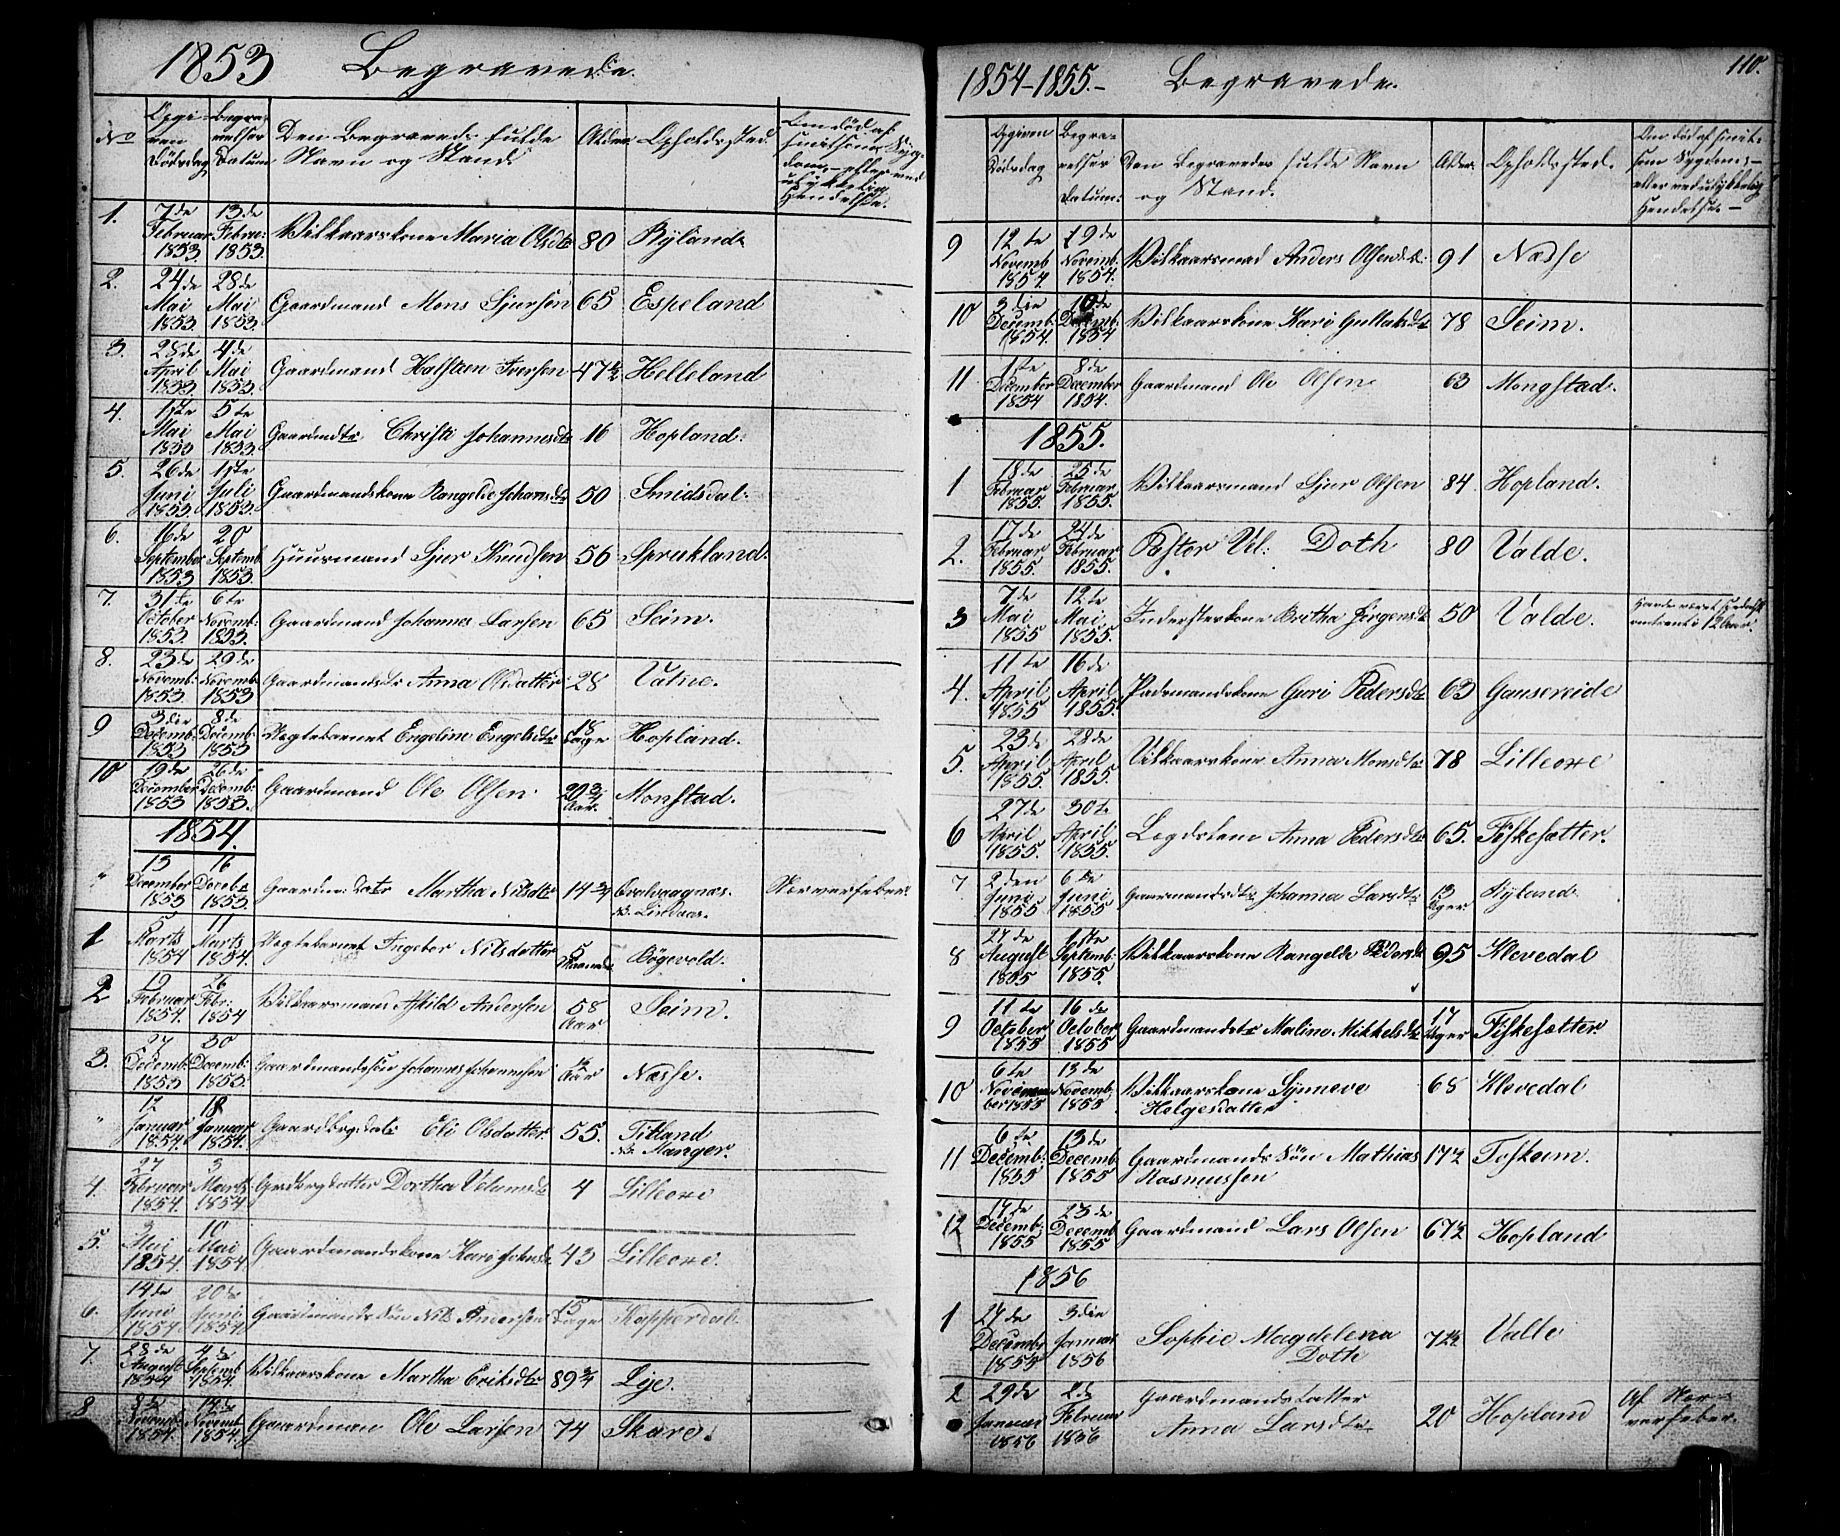 1853 Begravede.
No
Opgi-
ven
Dødsdag
Begra-
velses
Datum
Den Begravedes fulde
Navn og Stand
Alder
Opholdssted.
Om død af
smitsom Syg-
dom, eller ved
ulykkelig
Hændelse.
1. 7de Februar 1853. 13de Febru: 1853. Vilkaarskone Maria Olsdtr 80 Byland
2. 24de Mai 1853. 28de Mai 1853. Gaardmand Mons Sjursen 65 Espeland
3. 28de April 1853. 4de Mai 1853. Gaardmand Halsteen Iversen 47½ Helleland
4. 1ste Mai 1853 5te Mai 1853. Gaardmdtr. Christi Johannesdtr 16 Hopland.
5. 26de Juni 1853. 1ste Juli 1853. Gaardmandskone Rangelde Johansdtr 50 Smidsdal.
6. 16de September 1853 20 Septemb. 1853. Huusmand Sjur Knudsen 56 Sprukland.
7. 31te October 1853. 6te Novemb: 1853. Gaardmand Johannes Larsen 65 Seim.
8. 23de Novemb: 1853. 29de Novemb. 1853 Gaardmandsdtr Anna Olsdatter 28 Vatne.
9 3die Decemb: 1853 8de Decemb: 1853 Ægtebarnet Engeline Engelsdtr 18 Dage Hopland.
10 19de December 1853 26de Decemb: 1853. Gaardmand Ole Olsen. 20¾ Aar. Monstad.
1854.
" 13 December 1853 16 Decebr 1853. Gaardm: Dotr Martha Nilsdtr 14¾ Qvalvaagnæs. N: Lindaas. Nerverfeber.
1 5 Marts 1854 11 Marts 1854. Ægtebarnet Ingebor Nilsdatter 5 Maaneder Bøgevold.
2 19 Februar 1854. 26 Febr: 1854 Vilkaarsmand Askild Andersen 58 Aar Seim.
3. 27 Decemb: 1853 30 Decemb: 1853. Gaardmandssøn Johannes Johannesen ½ Aar Næsse.
" 12 Januar 1854. 18 Januar 1854. Gaardbrgsdatr Eli Olsdatter. 55. Titland N: Manger.
4. 27 Februar 1854. 3 Marts 1854 Grdbrgdatter Dortha Velumsdtr 4 Lilleoxe
5. 3 Mai 1854. 10 Mai 1854. Gaardmandskone Kari Johnsdtr 43 Lilleoxe.
6. 14de Juni 1854 20de Juni 1854 Gaardmands Søn Nils Andersen 15 Dage Kopperdal.
7. 28de August 1854 4de Septemb 1854. Vilkaarskone Martha Eriksdtr 89¾ Lye.
8 8de Novemb: 1854. 14de Novemb 1854. Gaardman Ole Larsen 74 Skare.
1854-1855.- Begravede. 110.
Opgiven
Dødsdag
Begra-
velses
Datum:
Den Begravedes fulde Navn
og Stand.
Alder.
Opholdssted.
Om død af smit-
som Sygdom-
eller ved ulykkelig
Hændelse.-
9 12te Novemb 1854. 19de Novemb. 1854. Vilkaarsmad Anders Olsen 91 Næsse
10 3die Decemb. 1854. 10de Decemb. 1854 Vilkaarskone Kari Gullaksdtr 78 Seim.
11 1ste December 1854 8de December 1854. Gaardmand Ole Olsen 63 Mongstad.
1855.
1 18de Februar 1855. 25de Februar 1855. Vilkaarsmand Sjur Olsen 84 Hopland.
2. 17de Februar 1855. 24de Februar 1855. Pastor Vel: Doth 80 Valde.
3 7de Mai 1855 12te Mai 1855. Inderstekone Britha Jørgensdtr 50 Valde. Havde været 12 Aar.
4. 11te April 1855 16de April 1855. Pladsmandskone Guri Pedersdtr 63 Gausereide
5. 23de April 1855. 28de April 1855. Vilkaarskone Anna Monsdtr 78 Lilleoxe
6 27de April 1855. 30te April 1855. Legdslem Anna Pedersdtr 65. Fiskesætter.
7 2den Juni 1855 6te Juni 1855 Gaarmandsdtr Johanna Larsdtr 13 Uger Ryland
8 27de August 1855 1ste Septemb: 1855. Vilkaarskone Rangelde Pedersdtr 95 Klevedal
9 11te October 1855 16de October 1855 Gaardmandsdtr Maline Mikkelsdtr 17 Uger Fiskesætter
10 6te November 1855 13de Novemb. 1855 Vilkaarskone Synneve 68 Klevedal
Helgesdatter
11 6te Decemb: 1855 13de Decemb 1855 Gaardmands Søn Mathias 17½ Toskum.
Rasmussen
12 17de Decemb: 1855 23de Decemb 1855 Gaardmand Lars Olsen 67½ Hopland
1856
1 27de Decembr 1855 3die Januar 1856 Sophie Magdelena 72½ Valle
Doth
2 29de Januar 1856 2de Februar 1856 Gaardmandsdatter
Anna Larsdtr 20 Hopland Af Ner-
verfeber.